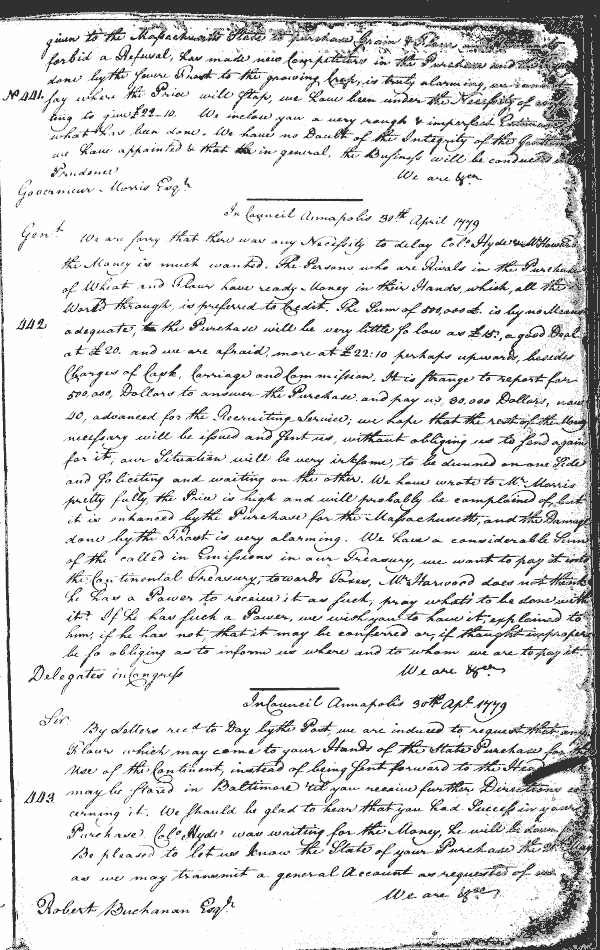 given to the Massachusetts State to purchase Grain & Flour
forbid a Refusal, has made new Competitors in the Purchase and the
done by the severe Frost to the growing Crop, is truly alarming, we cannot
No. 441. say where the Price will stop, we have been under the Necessity of
ting to give £22-10. We inclose you a very rough & imperfect Estimate
what has been done. We have no Doubt of the Integrity of the Gentlemen
we have appointed & that in general, the Business will be conducted
Prudence
We are &ca
Governeur Morris Esqr.
In Council Annapolis 30th April 1779
Gent.
We are sorry that there was any Necessity to delay Colo. Hyde & Mr Howard
the Money is much wanted. The Persons who are Rivals in the Purchase
of Wheat and Flour have ready Money in their Hands, which, all the
World through, is preferred to Credit. The Sum of 500,000 £. is by no Means
442 adequate, the Purchase will be very little so low as £15, a good Deal
at £20. and we are afraid more at £22:10 perhaps upwards, besides
Charges of Cask, Carriage and Commission. It is strange to report for
500,000, Dollars to answer the Purchase and pay us 30,000 Dollars, now
40, advanced for the Recruiting Service; we hope that the rest of the Money
necessary will be issued and sent us, without obliging us to send again
for it; our Situation will be very irksome, to be dunned on one Side
and soliciting and waiting on the other. We have wrote to Mr. Morris
pretty fully, the Price is high and will probably be complained of, but
it is enhanced by the Purchase for the Massachusetts, and the Damage
done by the Frost is very alarming. We have a considerable Sum
of the called in Emissions in our Treasury, we want to pay it into
the Continental Treasury, towards Taxes, Mr Harwood does not think
he has a Power to receive it as such, pray what's to be done with
it? If he has such a Power, we wish you to have it, explained to
him, if he has not, that it may be conferred or, if thought improper
be so obliging as to inform us where and to whom we are to pay it.
Delegates in Congress We are &ca
In Council Annapolis 30th Apl. 1779
Sir
By Letters recd to Day by the Post, we are induced to request that any
Flour which may come to your Hands of the State Purchase for the
Use of the Continent, instead of being sent forward to the Head
may be stored in Baltimore 'til you receive further Directions
443 cerning it. We should be glad to hear that you had Success in your
Purchase. Colo. Hyde was waiting for the Money, he will be down
Be pleased to let us know the State of your Purchase the
as we may transmit a general Account as requested of us.
We are &ca
Robert Buchanan Esqr.